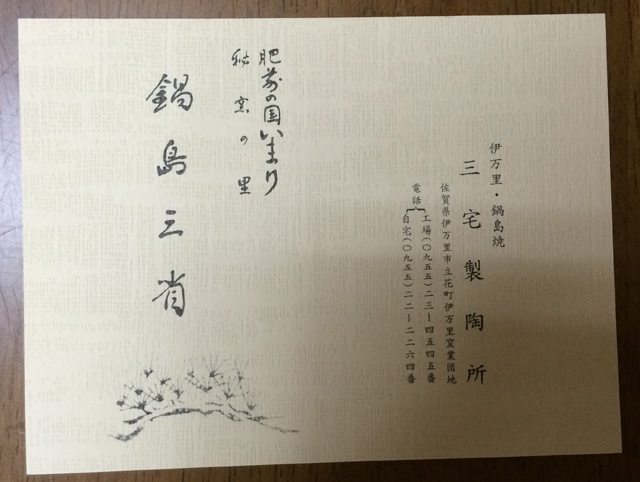 伊万里・鍋島焼
三宅製陶所
佐賀県伊万里市立花町伊万里窯業団地
電話
工場(〇九五五)二三ー四五四五番
自宅(〇九五五)二二ー二二六四番
肥前の国いまり
秘窯の里
鍋島三省